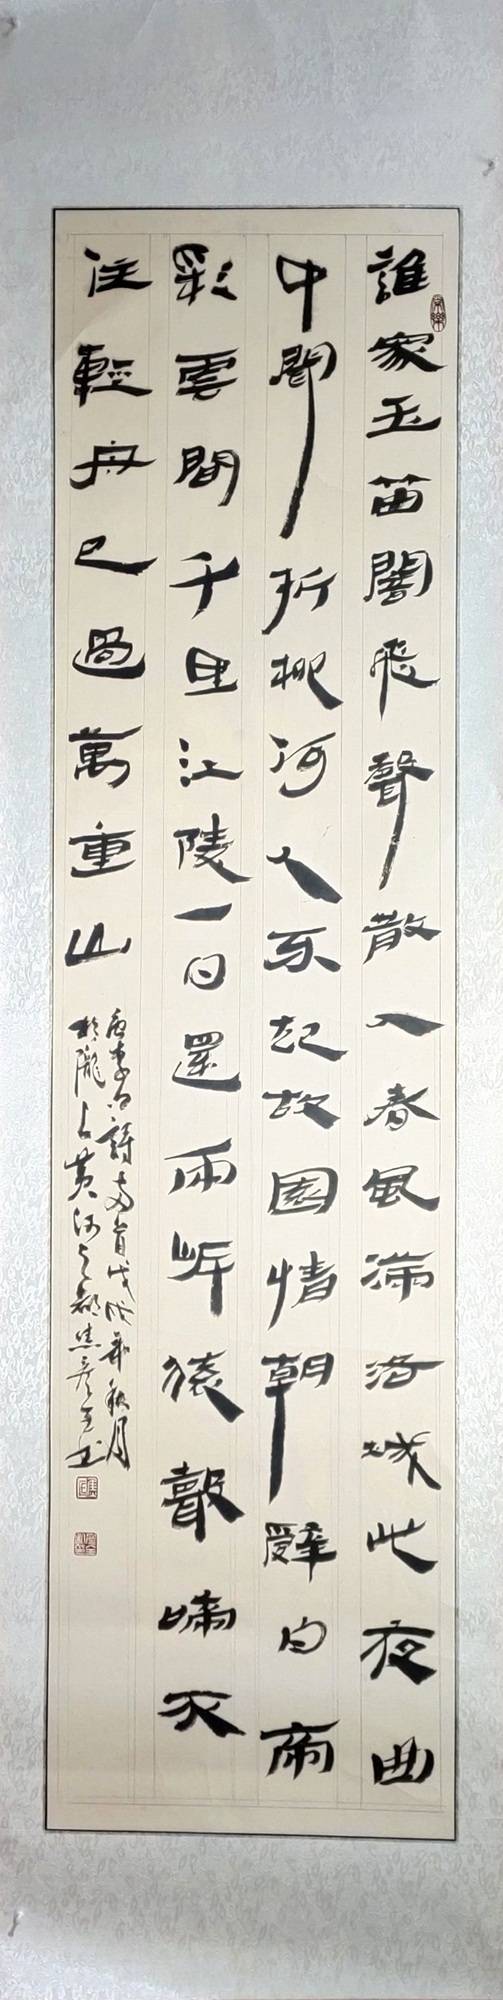 誰家玉笛闇飛聲散入春風滿洛城此夜曲
中聞折柳河人不起故園情朝辭白帝
彩雲間千里江陵一日還兩岸猿聲啼不
住輕舟已過萬重山
唐李白詩兩首戊戌秋月
於隴上黃河之都書